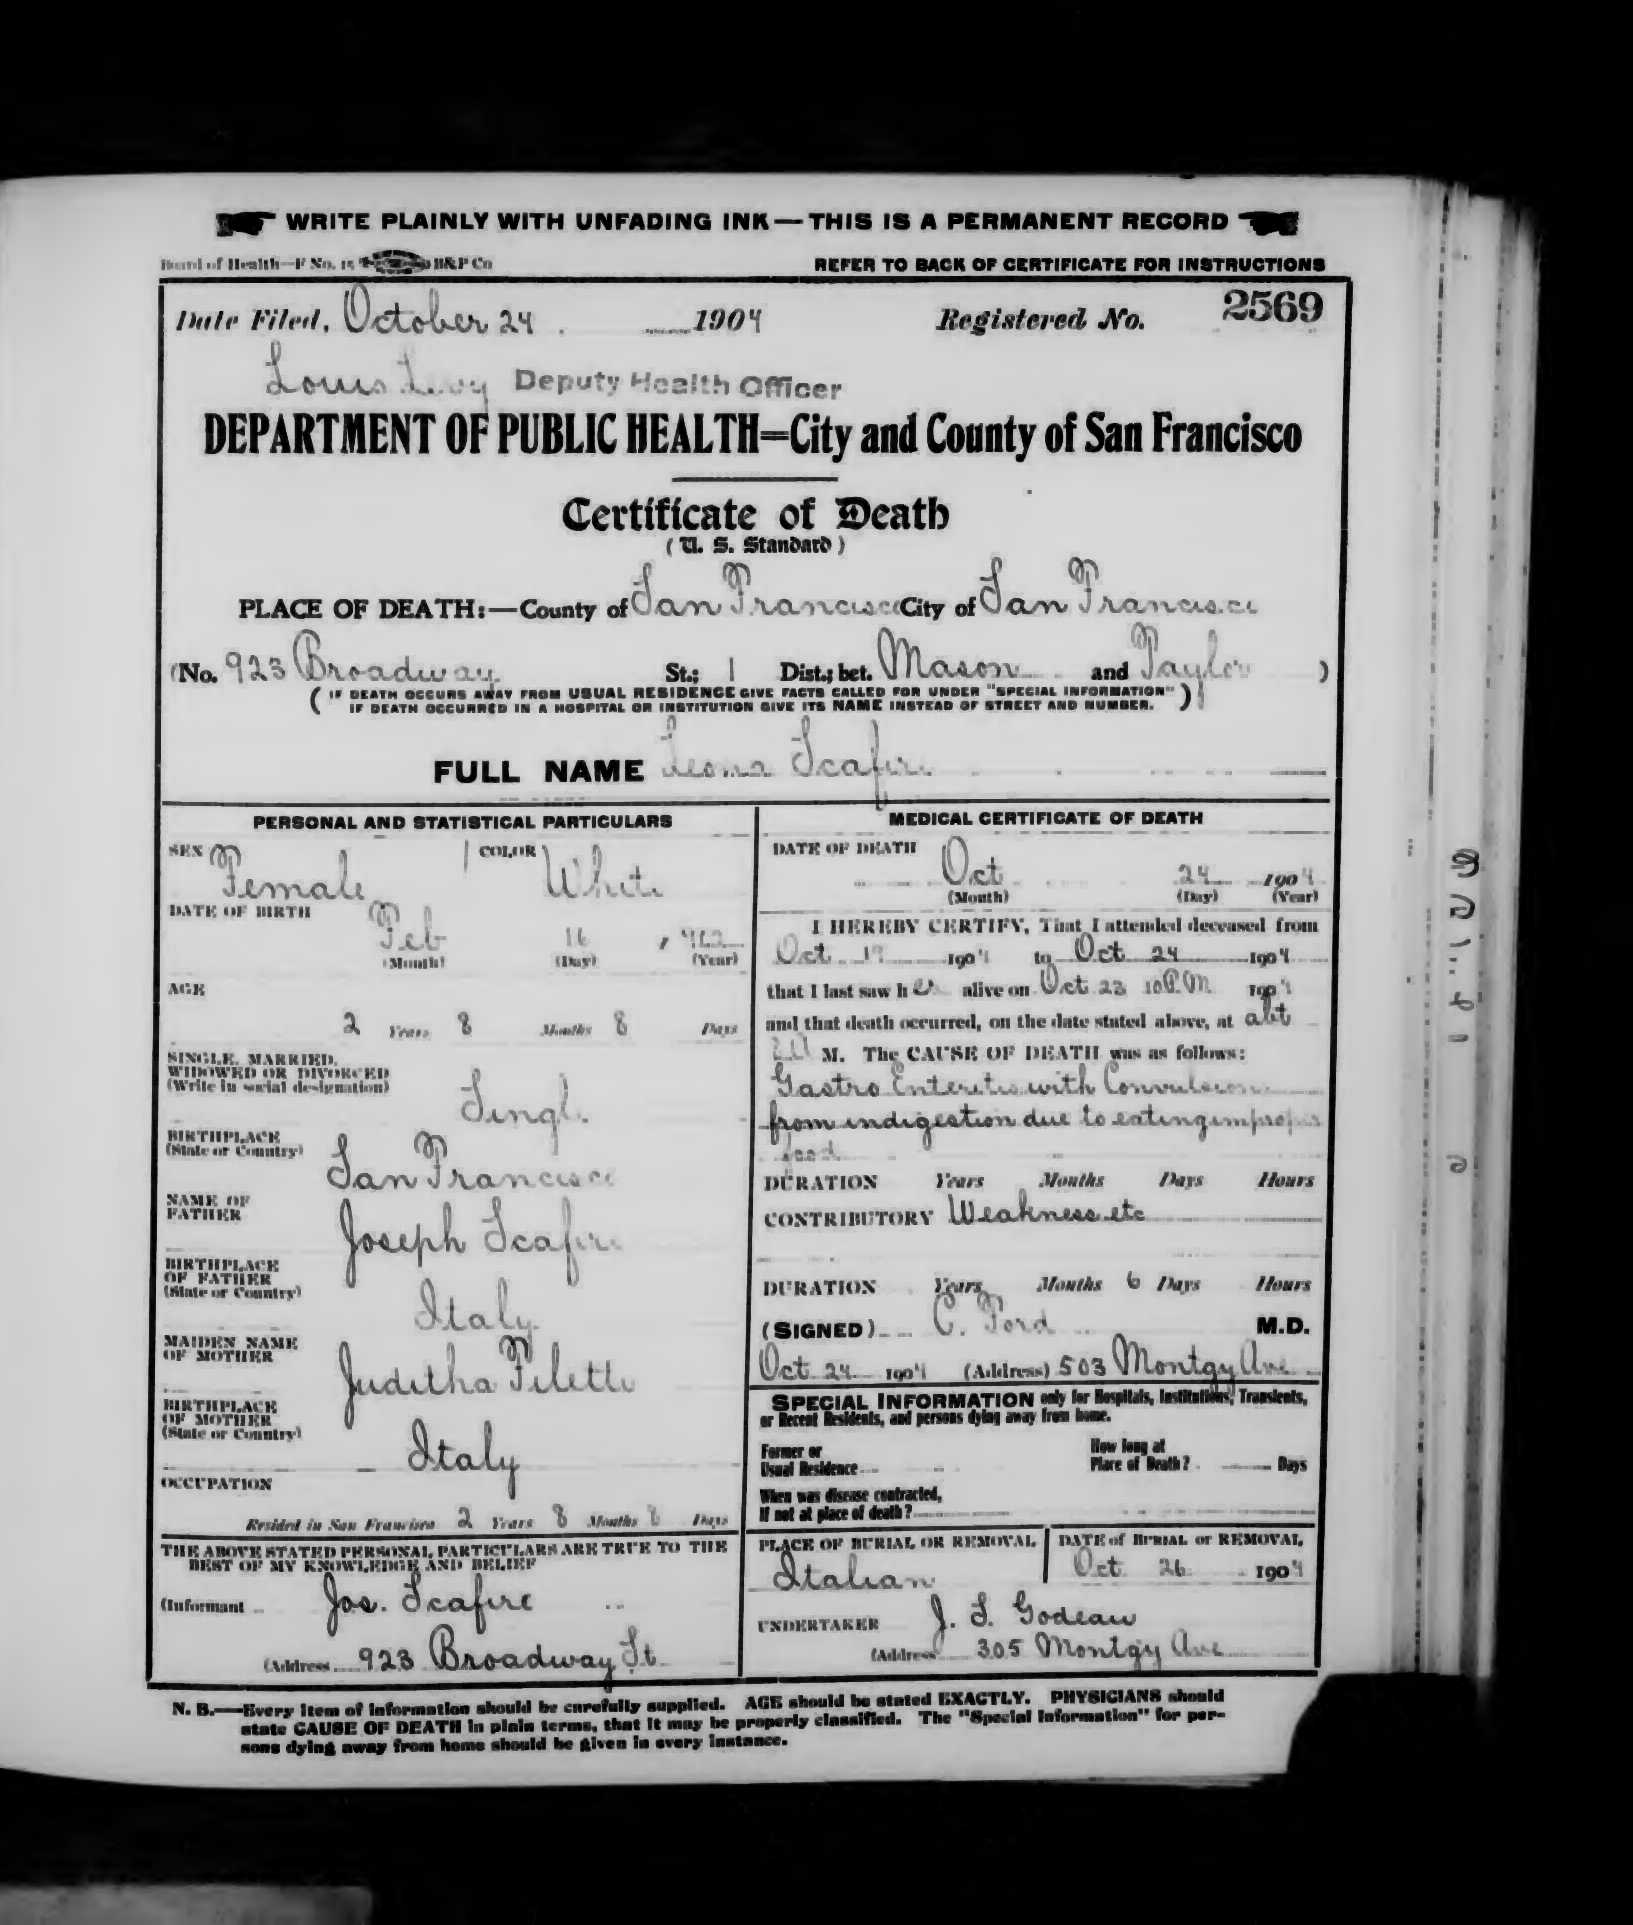 WRITE PLAINLY WITH UNFADING INK — THIS IS A PERMANENT RECORD
Board of Health—F No. 15 B&P Co REFER TO BACK OF CERTIFICATE FOR INSTRUCTIONS
Date Filed, October 24 1904 Registered No. 2569
Louis Levy Deputy Health Officer
DEPARTMENT OF PUBLIC HEALTH=City and County of San Francisco
Certificate of Death
(U. S. Standard)
PLACE OF DEATH:—County of San Francisco City of San Francisco
(No. 923 Broadway St.; 1 Dist.; bet. Mason and Taylor )
( IF DEATH OCCURS AWAY FROM USUAL RESIDENCE GIVE FACTS CALLED FOR UNDER "SPECIAL INFORMATION" )
( IF DEATH OCCURRED IN A HOSPITAL OR INSTITUTION GIVE ITS NAME INSTEAD OF STREET AND NUMBER. )
FULL NAME Leona Scafire
PERSONAL AND STATISTICAL PARTICULARS
SEX Female COLOR White
DATE OF BIRTH
Feb 16
(Month) (Day) (Year)
AGE
2 Years 8 Months 8 Days
SINGLE, MARRIED,
WIDOWED OR DIVORCED
(Write in social designation)
Single
BIRTHPLACE
(State or Country)
San Francisco
NAME OF
FATHER
Joseph Scafire
BIRTHPLACE
OF FATHER
(State or Country)
Italy
MAIDEN NAME
OF MOTHER
Juditha Filetti
BIRTHPLACE
OF MOTHER
(State or Country)
Italy
OCCUPATION
Resided in San Francisco 2 Years 8 Months 8 Days
THE ABOVE STATED PERSONAL PARTICULARS ARE TRUE TO THE
BEST OF MY KNOWLEDGE AND BELIEF
(Informant Jos. Scafire
(Address 923 Broadway St
MEDICAL CERTIFICATE OF DEATH
DATE OF DEATH
Oct 24 1904
(Month) (Day) (Year)
I HEREBY CERTIFY, That I attended deceased from
Oct 19 1904 to Oct 24 1904
that I last saw her alive on Oct 23 10 P.M 1904
and that death occurred, on the date stated above, at abt
M. The CAUSE OF DEATH was as follows:
Gastro Enteritis with Convulsions
from indigestion due to eating improper
food
DURATION Years Months Days Hours
CONTRIBUTORY Weakness etc
DURATION Years Months 6 Days Hours
(SIGNED) C. Ford M.D.
Oct 24 1904 (Address) 503 Montgy Ave
SPECIAL INFORMATION only for Hospitals, Institutions, Transients,
or Recent Residents, and persons dying away from home.
Former or
Usual Residence
How long at
Place of Death? Days
When was disease contracted,
If not at place of death?
PLACE OF BURIAL OR REMOVAL
Italian
DATE of BURIAL or REMOVAL
Oct 26 1904
UNDERTAKER J. S. Godeau
(Address 305 Montgy Ave
N. B.—Every item of information should be carefully supplied. AGE should be stated EXACTLY. PHYSICIANS should
state CAUSE OF DEATH in plain terms, that it may be properly classified. The "Special Information" for per-
sons dying away from home should be given in every instance.